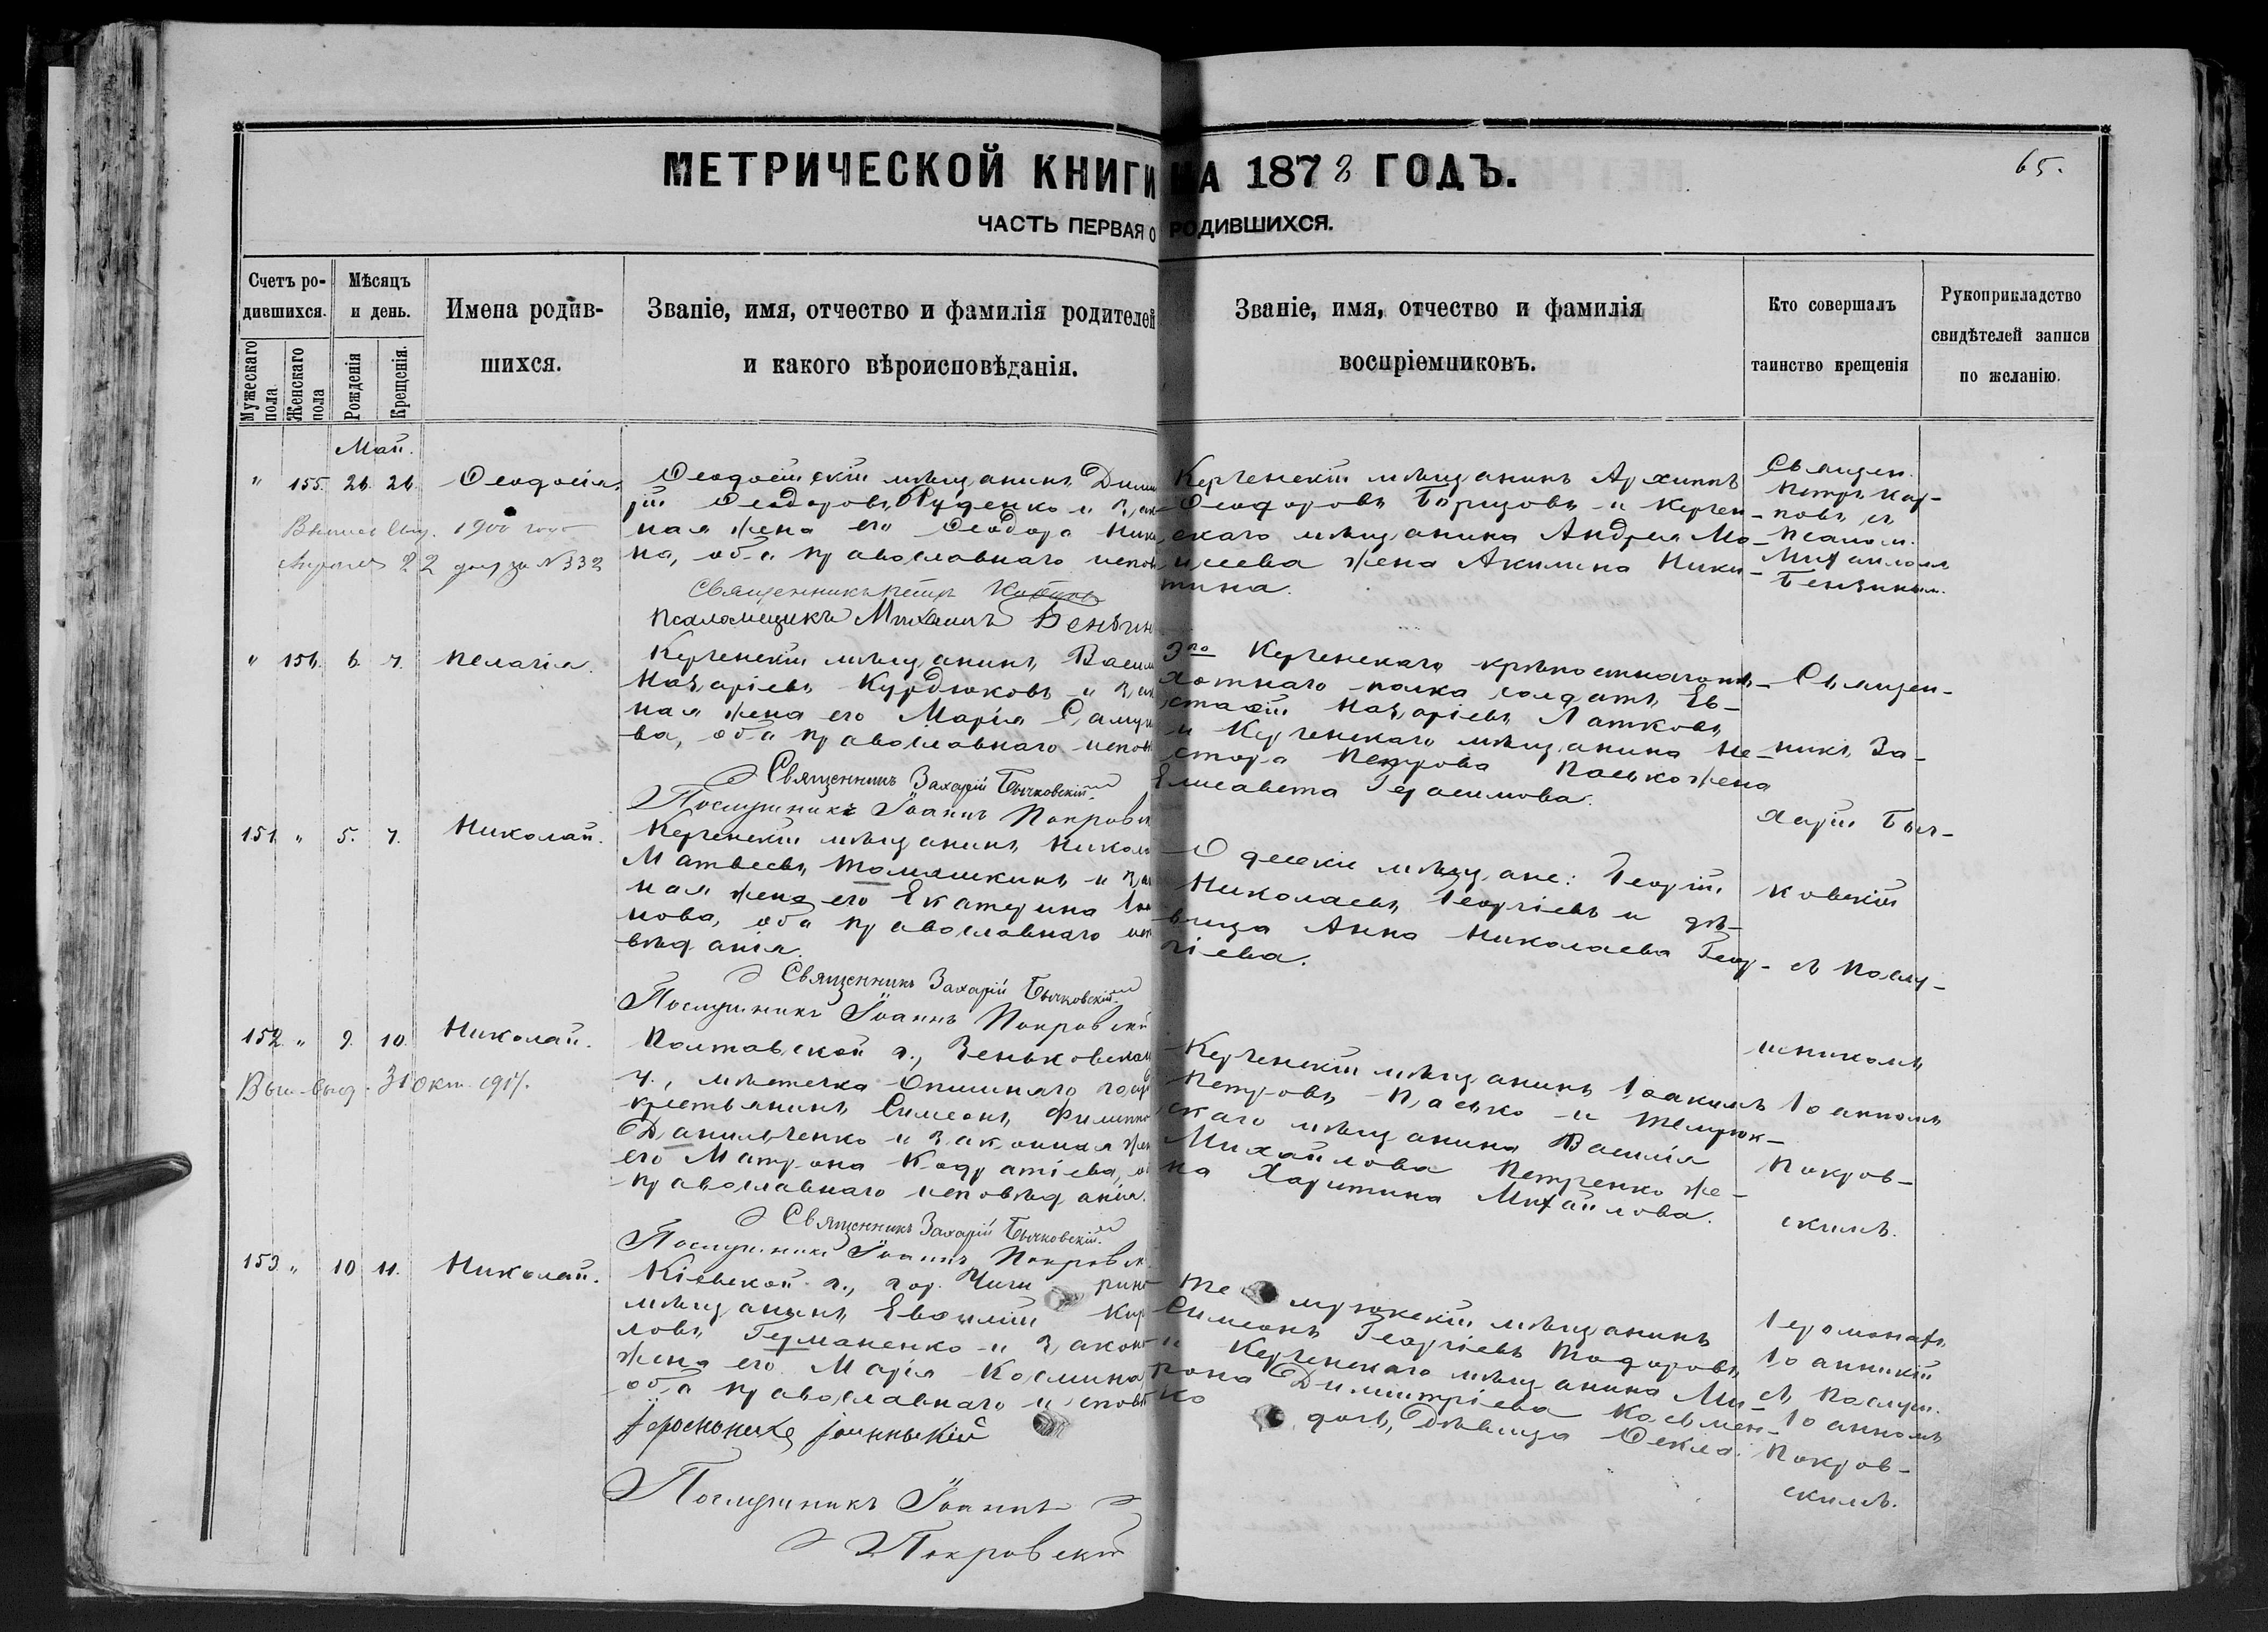 МЕТРИЧЕСКОЙ КНИГИ НА 1878 ГОДЪ.
65.
ЧАСТЬ ПЕРВАЯ О РОДИВШИХСЯ.
Счетъ ро-
дившихся.
Мужескаго пола
Женскаго пола
Мѣсяцъ
и день.
Рожденія
Крещенія.
Имена родив-
шихся.
Званіе, имя, отчество и фамилія родителей
и какого вѣроисповѣданія.
Званіе, имя, отчество и фамилія
воспріемниковъ.
Кто совершалъ
таинство крещенія
Рукоприкладство
свидѣтелей записи
по желанію.
Май.
" 155. 26. 26. Ѳеодосія.
1900 года
Апрѣля 22 дня за №332
Ѳеодосійскій мѣщанинъ Дими
рій Ѳеодоровъ Руденко и зак
ная жена его Ѳеодора Ники
на, оба православнаго испов
Священникъ Петръ
Псаломщикъ Михаилъ Бензин
Керченскій мѣщанинъ Архиппъ
Ѳеодоровъ Борзовъ и Керчен-
скаго мѣщанина Андрея Мо-
исеева жена Акилина Ники-
тина.
Священ.
Петръ Кар-
повъ съ
Псалом.
Михаиломъ
Бензинымъ.
" 156. 6. 7. Пелагія.
Керченскій мѣщанинъ Васил
Назаріевъ Курдюковъ и зак
ная жена его Марія Саму
ва, оба православнаго испов
Священникъ Захарій Бычковскій
Послушникъ Іоаннъ Покровск
3го Керченскаго крѣпостнаго пѣ-
хотнаго полка солдатъ Ев-
стафій Назаріевъ Латковъ
и Керченскаго мѣщанина Не-
стора Петрова Пасько жена
Елисавета Герасимова.
Священ-
никъ За-
харій Быч-
ковскій
съ Послу-
шникомъ
Іоанномъ
Покров-
скимъ.
151. " 5. 7. Николай.
Керченскій мѣщанинъ Никол
Матвѣевъ Томашкинъ и зак
ная жена его Екатерина
нова, оба православнаго исп
вѣданія.
Священникъ Захарій Бычковскій
Послушникъ Іоаннъ Покровскі
Одесскіе мѣщане: Георгій
Николаевъ Георгіевъ и дѣ-
вица Анна Николаева Геор-
гіева.
152. " 9. 10. Николай.
31 Окт. 1917.
Полтавской г., Зеньковскаго
у., мѣстечка Опошняго госуд
крестьянинъ Симеонъ Филиппо
Данильченко и законная жен
его Матрона Кодратіева, о
православнаго исповѣданія.
Священникъ Захарій Бычковскій
Послушникъ Іоаннъ Покровск
Керченскій мѣщанинъ Іоакимъ
Петровъ Пасько и Темрюк-
скаго мѣщанина Василія
Михайлова Петренко же-
на Харитина Михайлова.
153. " 10. 11. Николай.
Кіевской г., гор. Чиги рина
мѣщанинъ Евфимій Кир
ловъ Германенко и закон
жена его Марія Космина
оба православнаго исповѣ
Іеромонахъ Іоанникій
Послушникъ Іоаннъ
Покровскій
Те мрюкскій мѣщанинъ
Симеонъ Георгіевъ Тодоровъ
и Керченскаго мѣщанина Ми-
рона Димитріева Косьмен-
ко дочь, дѣвица Ѳекла.
Іеромонахъ
Іоанникій
съ Послуш.
Іоанномъ
Покров-
скимъ.